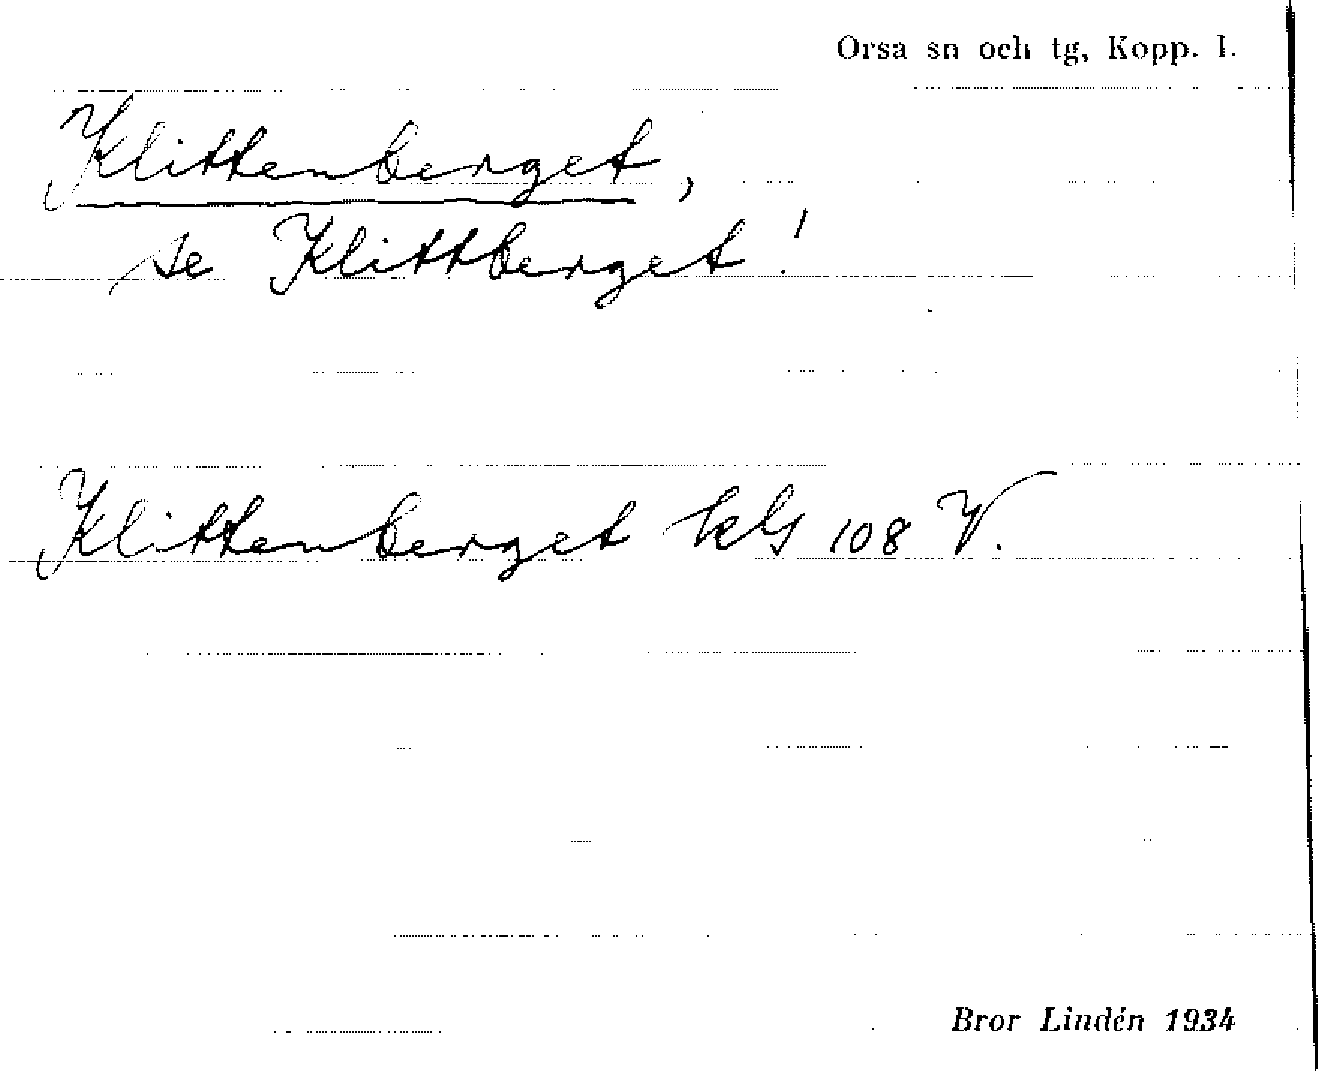 Orsa sn och tg, Kopp. l.
Klittenberget,
se Klittberget!
Klittenberget kbl 108 V.
Bror Lindén 1934